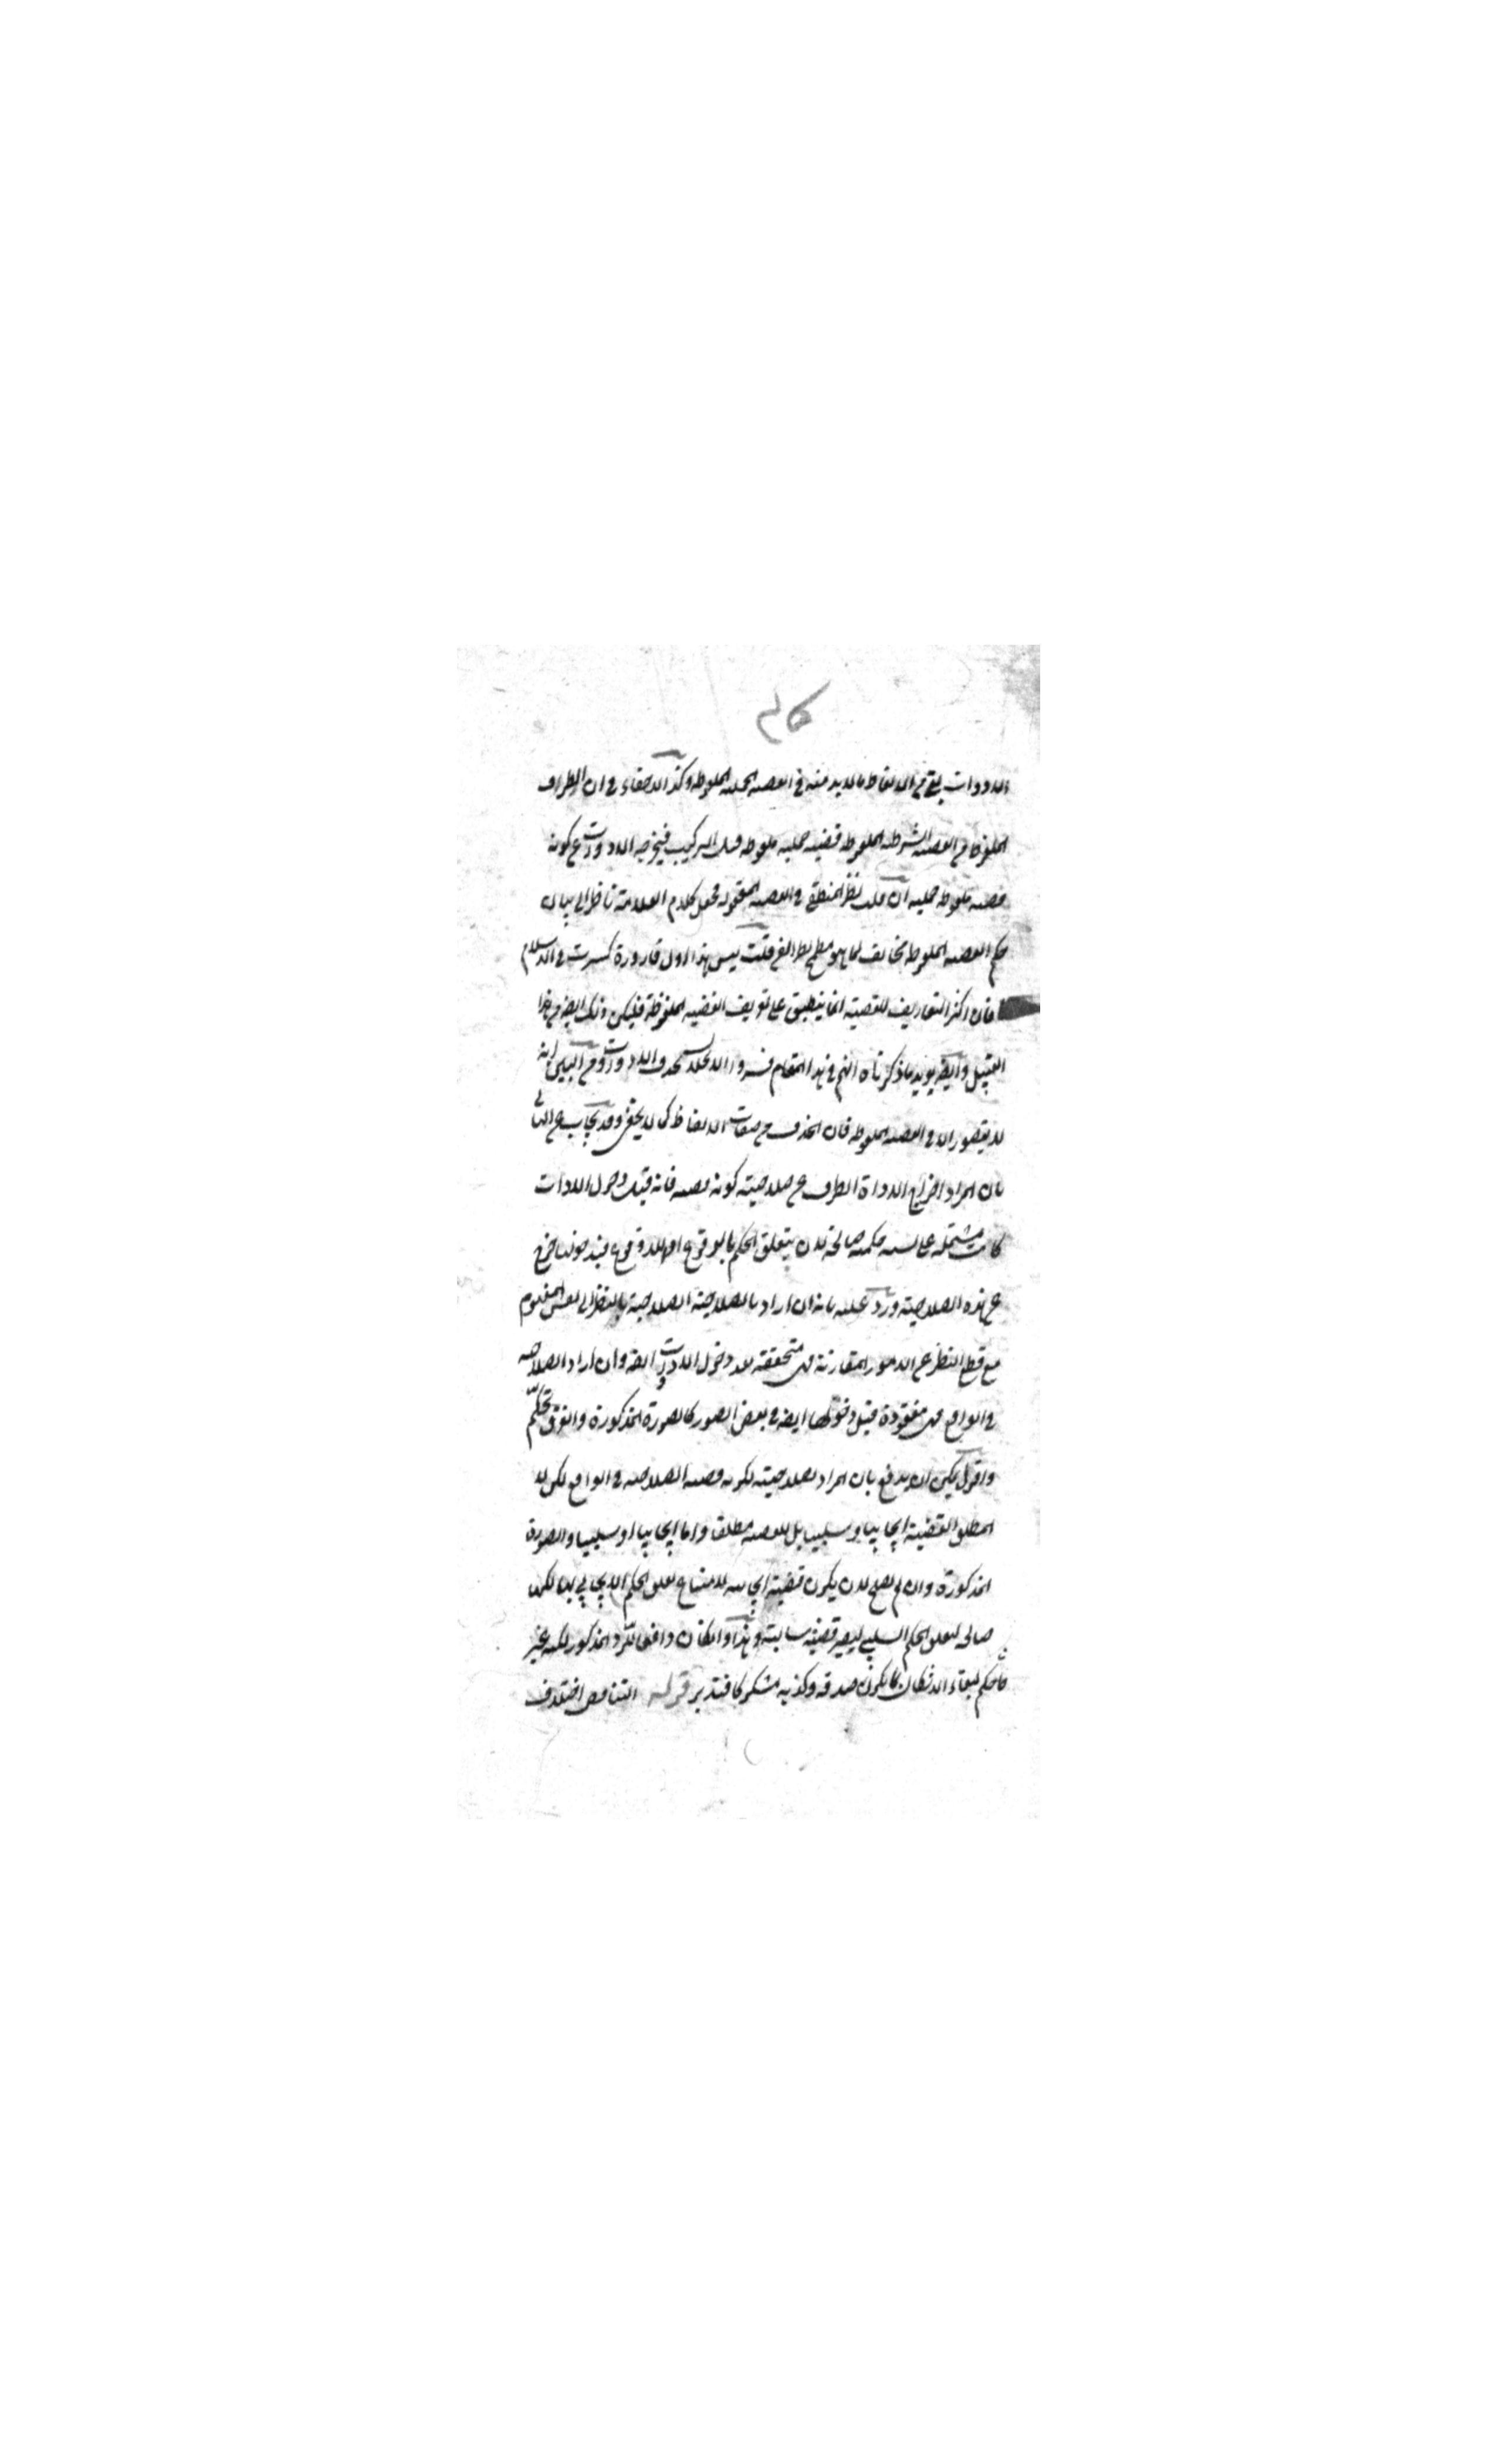 الادوات يبقى من الالفاظ ما لا بد منه في القضية الحملية الملفوظة وكذا لا خفاء في ان اطراف
الملفوظ من القضية الشرطية الملفوظة قضية حملية ملفوظة قبل التركيب فيخرجه الادوات عن كونه
قضية ملفوظة حملية ان قلت نظر المنطقي في القضية المعقولة فجعل كلام العلامة ناظرا الى بيان
حكم القضية الملفوظة مخالف لما هو مطمح نظر الفن قلت ليس هذا اول قارورة كسرت في الاسلام
فان اكثر التعاريف للقضية انما ينطبق على تعريف القضية الملفوظة فليكن ذلك ايضا من هذا
القبيل وايضا يؤيد ما ذكرناه انهم في هذا المقام فسروا الانحلال بحذف الادوات ومن البين انه
لا يتصور الا في القضية الملفوظة فان الحذف من صفات الالفاظ كما لا يخفى وقد يجاب عن الثاني
بان المراد اخراج الاداة الطرف عن صلاحية كونه قضية فانه قبل دخول الادات
كانت مشتملة على نسبة حكمية صالحة لان يتعلق الحكم بالوقوع او اللاوقوع فبدخولها خرج
عن هذه الصلاحية ورد عليه بانه ان اراد بالصلاحية الصلاحية بالنظر الى نفس المفهوم
مع قطع النظر عن الامور المقارنة فهي متحققة بعد دخول الادوات ايضا وان اراد الصلاحية
في الواقع فهي مفقودة قبل دخولها ايضا في بعض الصور كالصورة المذكورة والفرق تحكم
واقول يمكن ان يدفع بان المراد بصلاحيته لكونه قضية الصلاحية في الواقع لكن لا
لمطلق القضية ايجابيا وسلبيا بل للقضية مطلقا واما ايجابيا او سلبيا والصورة
المذكورة وان لم يصلح لان يكون قضية ايجابية لامتناع تعلق الحكم الايجابي بها لكنها
صالحة لتعلق الحكم السلبي ليصير قضية سالبة وهذا وان كان دافعا للرد المذكور لكنه غير
حاكم لبقاء الاشكال بما يكون صدقه وكذبه مشكوكا فتدبر قوله التناقض اختلاف